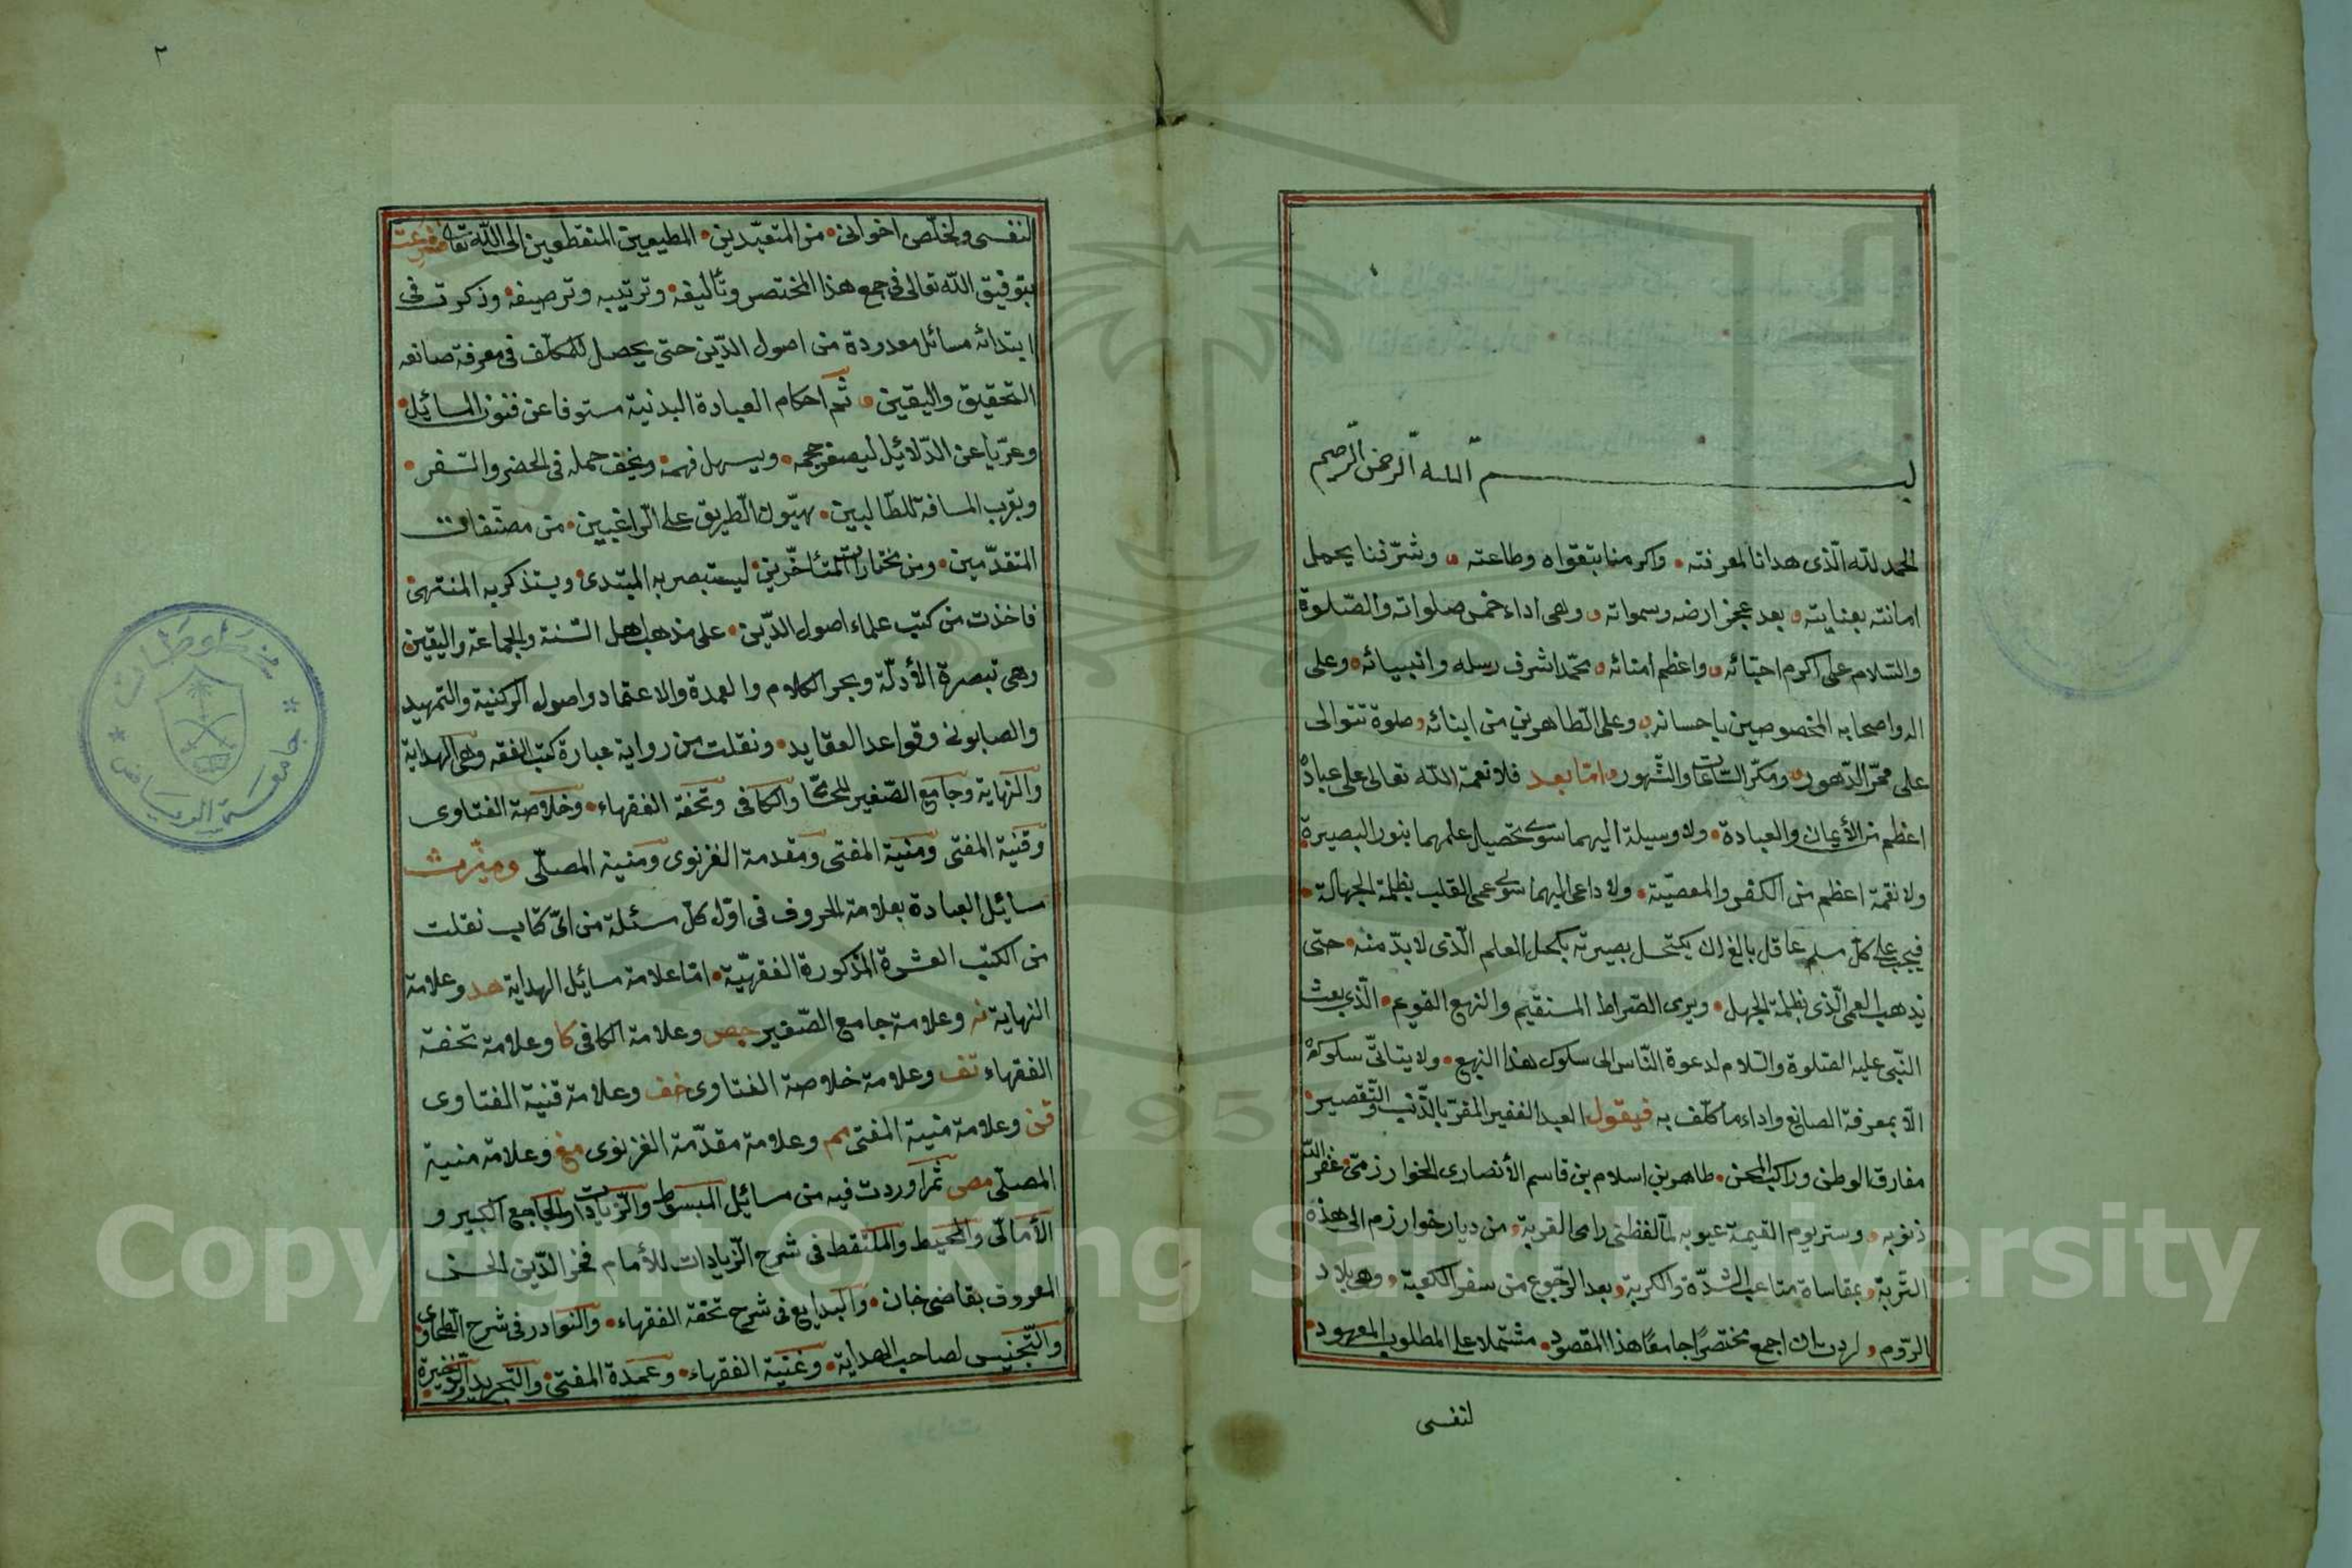 بسم الله الرحمن الرحيم
الحمد لله الّذى هدانا لمعرفته • واكرمنا بتقواه وطاعته • وشرّفنا بحمل
امانته بعنايته • بعد عجز ارضه وسمواته • وهى اداء خمس صلواته والصّلوة
والسّلام على اكرم احبّائه • واعظم امنائه • محمّد اشرف رسله وانبيائه • وعلى
اله واصحابه المخصوصين باحسانه • وعلى الطّاهرين من ابنائه • صلوة تتوالى
على ممرّ الدّهور • ومكرّ السّاعات والشّهور • امّا بعد فلا نعمة الله تعالى على عباده
اعظم من الأيمان والعبادة • ولا وسيلة اليهما سوى تحصيل علمهما بنور البصيرة •
ولا نقمة اعظم من الكفر والمعصيّة • ولا داعى اليهما سوى عمى القلب بظلمة الجهالة •
فيجب على كلّ مسلم عاقل بالغ ان يكتحل بصيرته بكحل العلم الّذى لا بدّ منه • حتى
يذهب العمى الّذى بظلمة الجهل • ويرى الصّراط المستقيم والنهج القويم • الّذى بعث
النّبى عليه الصّلوة والسّلام لدعوة النّاس الى سلوك هذا النهج • ولا يتأتّى سلوكه
الّا بمعرفة الصانع واداء ما كلّف به فيقول العبد الفقير المقرّ بالذّنب والتّقصير •
مفارق الوطن وراكب المحن • طاهر بن اسلام بن قاسم الأنصارى الخوارزمى • غفر الله
ذنوبه • وستر يوم القيمة عيوبه لمّا لفظنى رامى القربة • من ديار خوارزم الى هذه
التّربة • بمقاساة متاعب الشّدّة والكربة • بعد الرّجوع من سفر الكعبة • وهى بلاد
الرّوم • اردت ان اجمع مختصرًا جامعًا هذا المقصود • مشتملا على المطلوب المعهود •
لنفسى
٢
لنفسى ولخلّص اخوانى • من المتعبّدين • المطيعين المنقطعين الى الله تعالى فشرعت
بتوفيق الله تعالى فى جمع هذا المختصر وتأليفه • وترتيبه وترصيفه • وذكرت فى
ابتدائه مسائل معدودة من اصول الدّين حتى يحصل للمكلّف فى معرفة صانعه
التحقيق واليقين • ثم احكام العبادة البدنية مستوفا عن فنون المسائل •
وعرّيا عن الدّلائل ليصغر حجمه • ويسهل فهمه • ويخف حمله فى الحضر والسّفر •
ويقرب المسافة للطّالبين • يهوّن الطّريق على الرّاغبين • من مصنّفات
المتقدّمين • ومن مختارات المتأخّرين • ليستبصر به المبتدى • ويستذكر به المنتهى
فاخذت من كتب علماء اصول الدّين • على مذهب اهل السّنة والجماعة واليقين
وهى تبصرة الأدلّة وبحر الكلام والعمدة والاعتماد واصول الركنية والتمهيد
والصابونى وقواعد العقايد • ونقلت من رواية عبارة كتب الفقه وهى الهداية
والنهاية وجامع الصّغير للمحشا والكافى وتحفة الفقهاء • وخلاصة الفتاوى
وقنية المفتى ومنية المفتى ومقدمة الغزنوى ومنية المصلّى وميّزت
مسايل العبادة بعلامة الحروف فى اوّل كلّ مسئلة من اىّ كتاب نقلت
من الكتب العشرة المذكورة الفقهيّة • امّا علامة مسايل الهداية هد وعلامة
النهاية نه وعلامة جامع الصّغير جص وعلامة الكافى كا وعلامة تحفة
الفقهاء تف وعلامة خلاصة الفتاوى خف وعلامة قنية الفتاوى
قن وعلامة منية المفتى مم وعلامة مقدّمة الغزنوى مغ وعلامة منية
المصلّى مص ثم اوردت فيه من مسايل المبسوط والزّيادات والجامع الكبير و
الأمالى والمحيط والملتقط فى شرح الزّيادات للأمام فخر الدّين الحسن
المعروف بقاضى خان • والبدايع فى شرح تحفة الفقهاء • والنوادر فى شرح الطّحاوى •
والتّجنيس لصاحب الهداية • وغنية الفقهاء • وعمدة المفتى • والتّجريد والذّخيرة •
جامعة الرياض
Copyright © King Saud University
1957